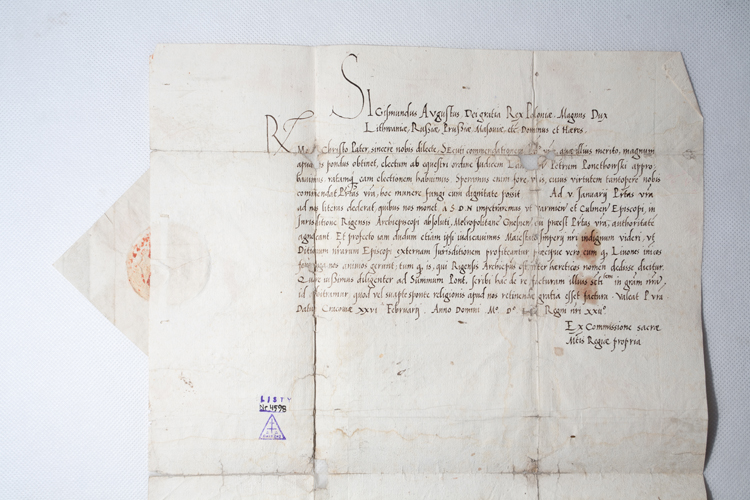 SIgismundus Augustus Dei gratia Rex Poloniæ Magnus Dux
Lithuaniæ, Russiæ, Prussiæ Masouiæ, etc. Dominus et Hæres.
in Christo Pater, sincere nobis dilecte, Secuti commendationem quæ illius merito, magnum
apud pondus obtinet, electum ab equestri ordine Judicem Petrum Ponethovski appro
bauimus ratamq eam electionem habuimus Speramus eum fore, cuius virtutem tantopere nobis
commendat Prtas vra, hoc munere fungi cum dignitate possit Ad v Januarij Prtas vra
ad nos literas dederat, quibus nos monet A S D N impetraremus vt Varmien et Culmen Episcopi, in
Jurisditione Rigensis Archiepiscopi absoluti, Metropolitanæ Gnesnen cui præest Ptas vra, authoritate
agnoscant Et profecto iam dudum etiam ipsi iudicauimus Maiestate Imperij nri indignum videri, vt
Ditionum nrarum Episcopi externam Jurisditionem profiteantur præcipue vero cum q Liuones
nos animos gerunt, tum q is, qui Rigensis Archiepus est inter hæreticos nomen dedisse dicitur.
Quare iussimus diligenter ad Summum Pont. scribi hac de re facturam illius in gram nram
id postramur, quod vel suapte sponte religionis apud nos retinendæ gratia esset factura. Valeat P vra
Datum Cracoviæ xxvi Februarij. Anno Domini M° D° Regni nri xxii°
Ex Commissione sacræ
Mtis Regiæ propria
LISTY
Nr 4598